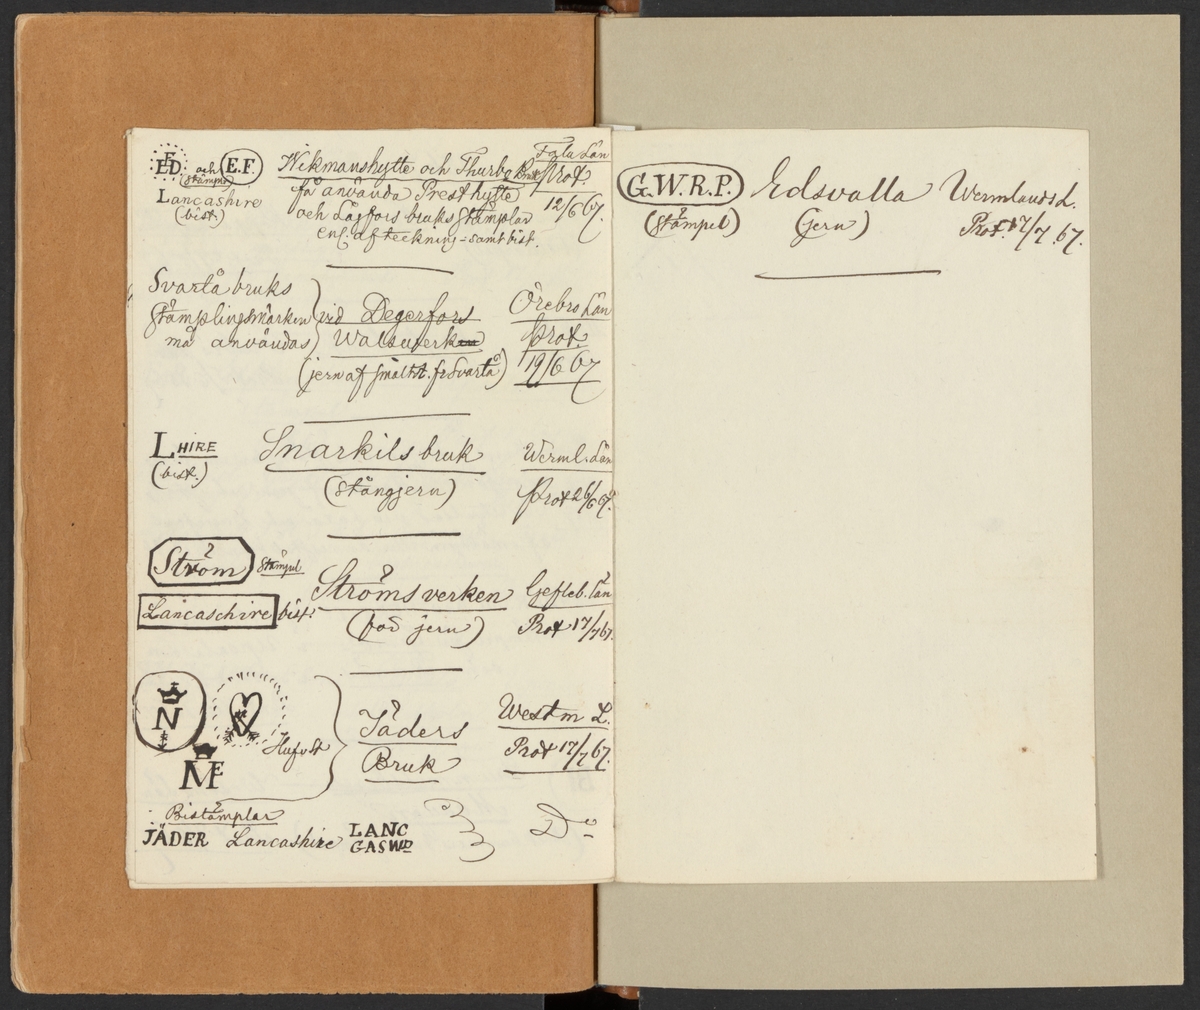 EFD och E.F. Wikmanshytte och Thurbo Bruk Falu Län
(stämpel) få använda Presthytte Prot.
Lancashire och Lågfors bruks stämplar 12/6 67.
(bist.) enl. afteckning - samt bist.
Svartå bruks
stämplingsmärken vid Degerfors Örebro Län
må användas Walsverk Prot.
(jern af smältst. fr Svartå) 19/6 67
LHIRE Snarkils bruk Werml. Län
(bist.) (stångjern) Prot 26/6 67.
Ström stämpel Ströms verken Gefleb. Län
Lancaschire bist. jern) Prot 17/7 67.
N Jäders Westm L.
Hufvst Bruk Prot 17/7 67.
ME
Bistämplar
JÄDER Lancashire LANC Do
GASWD
G.W.R.P. Edsvalla Wermlands L.
(stämpel) (jern) Prot. 17/7 67.